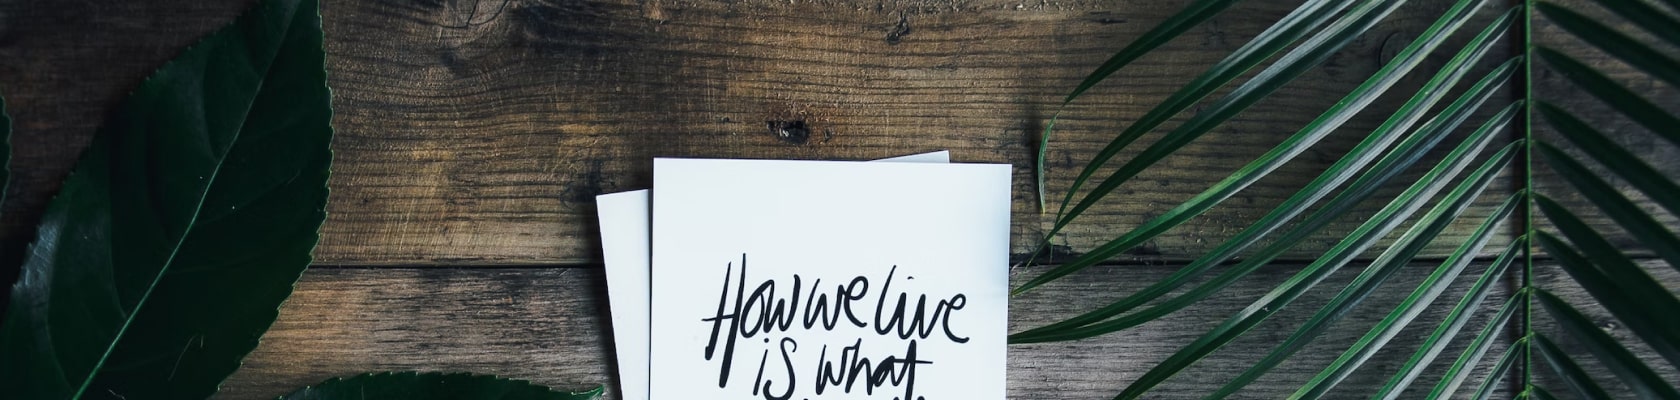 How we live
is what